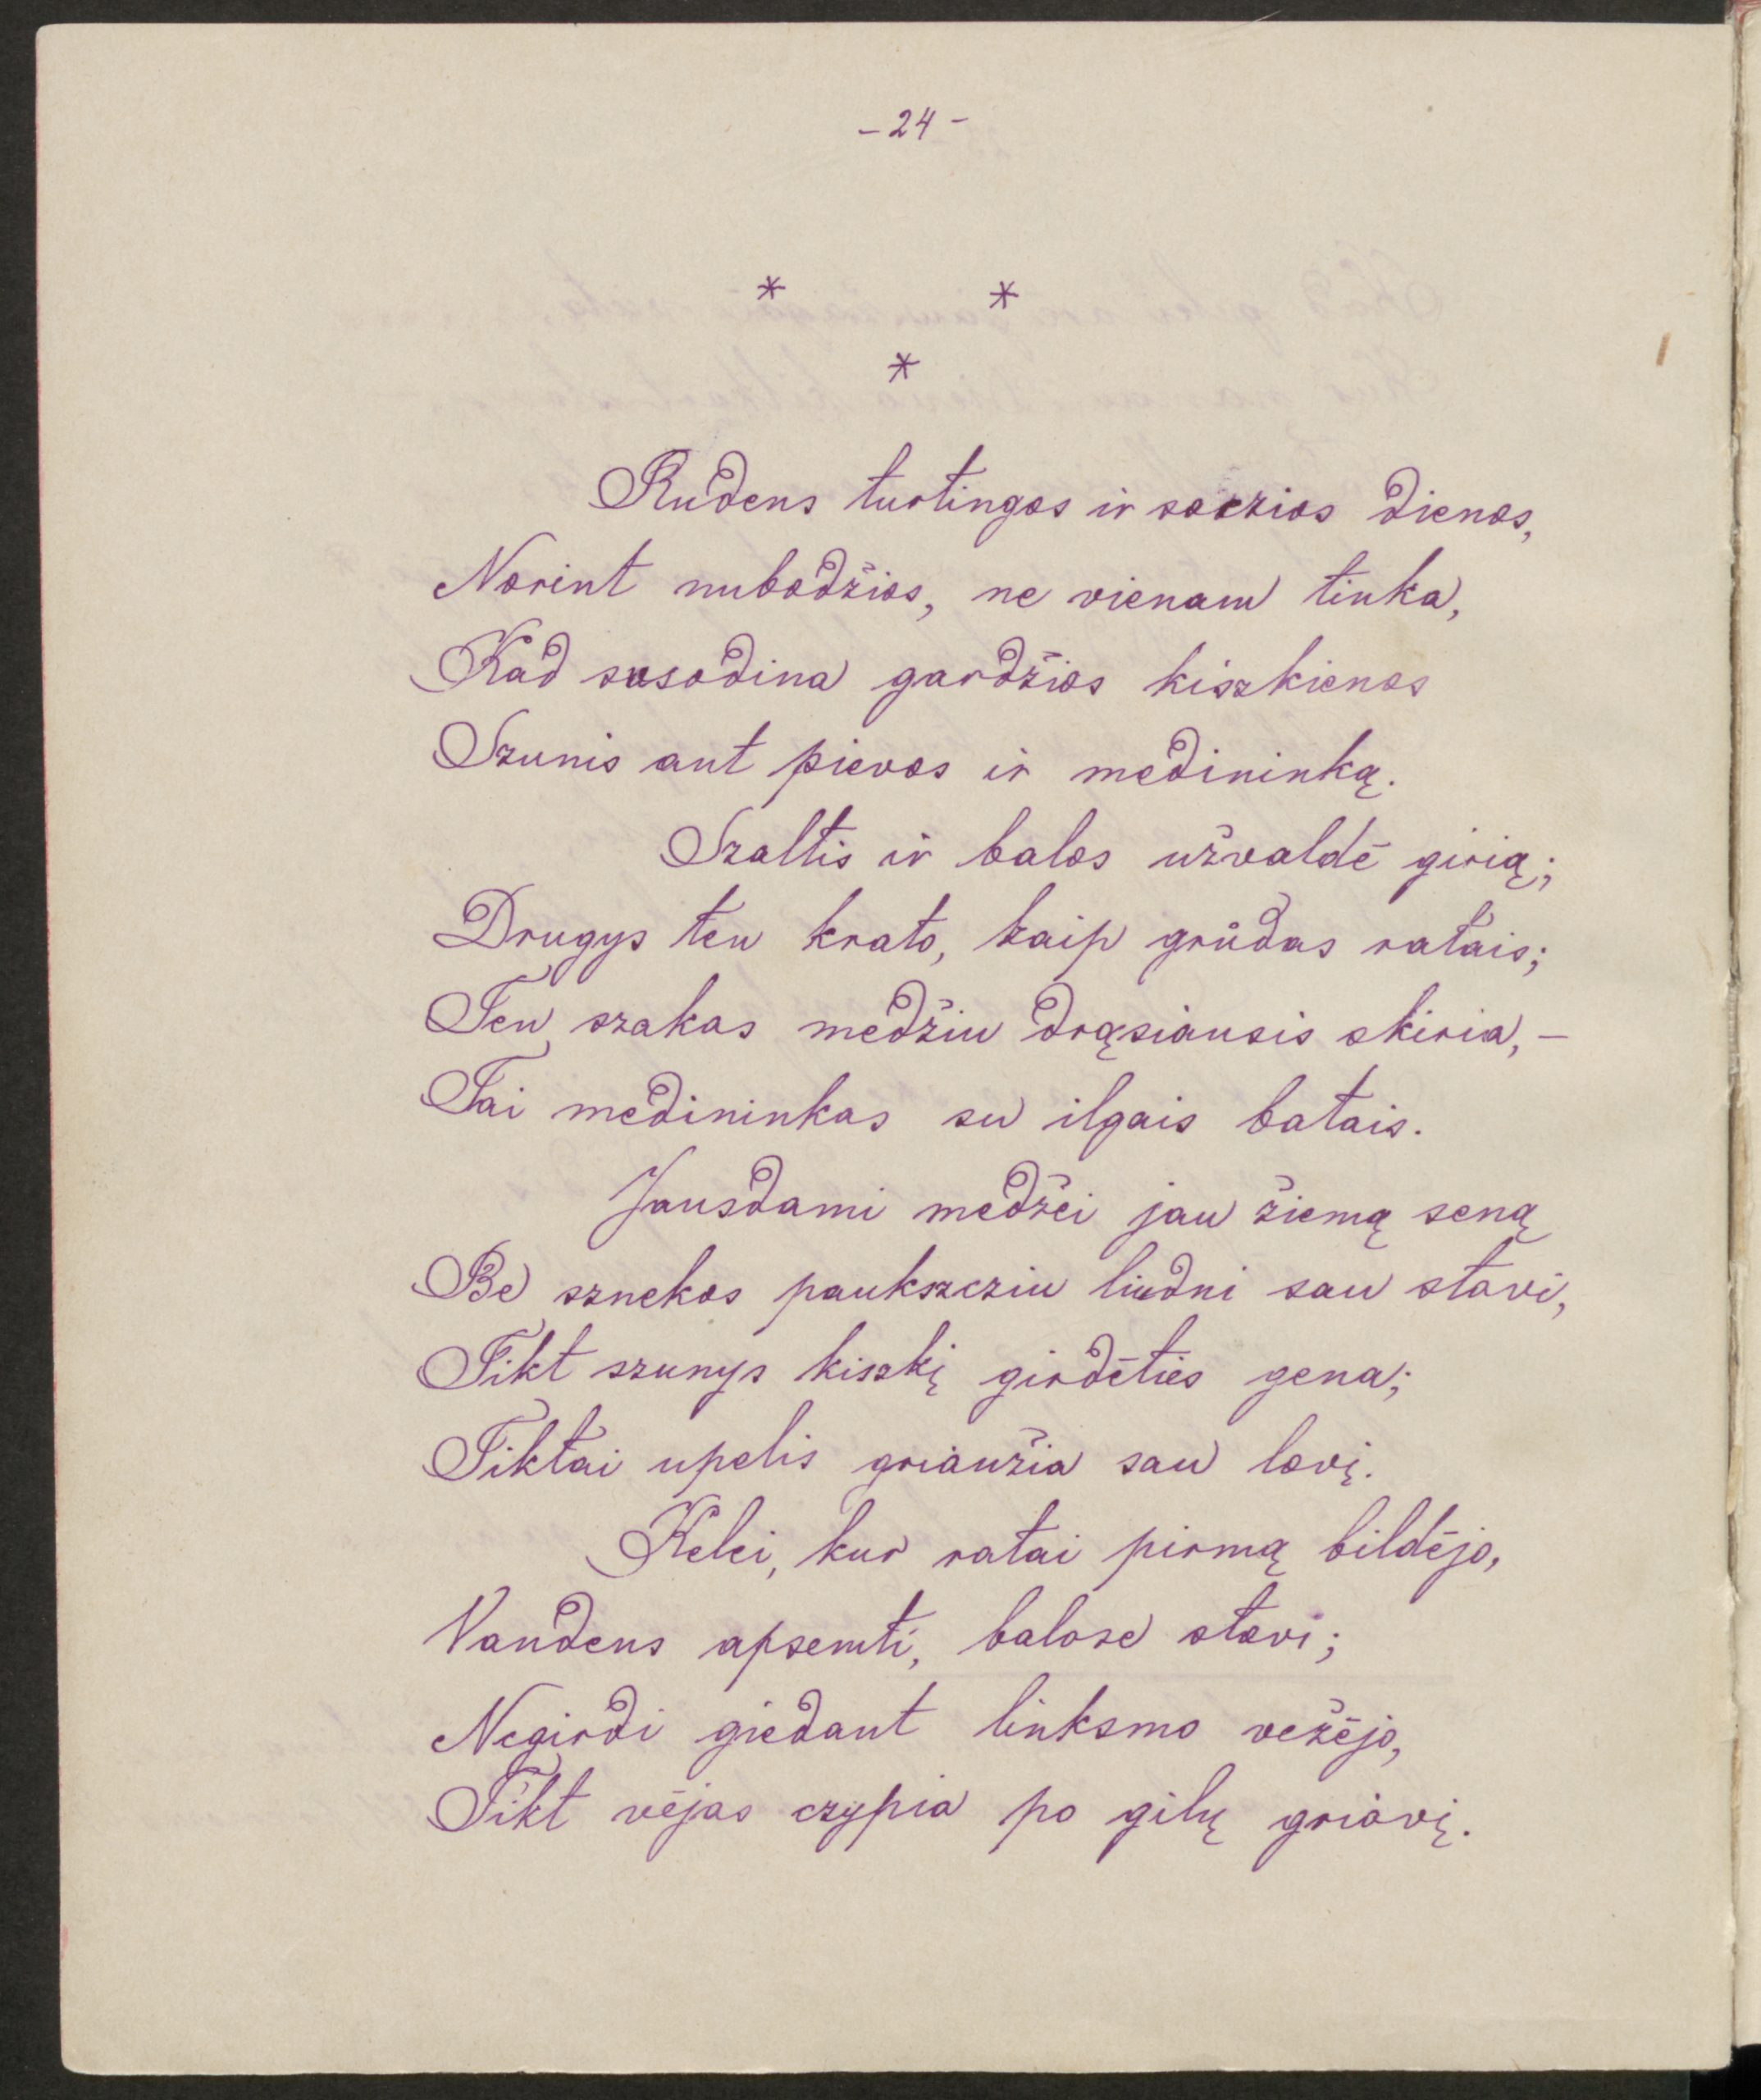 - 24 -
* *
*
Rudens turtingos ir soczios dienos,
Norint nubodžios, ne vienam tinka,
Kad susodina gardžios kiszkienos
Szunis ant pievos ir medininką.
Szaltis ir balos užvaldė girią;
Drugys ten krato, kaip grūdas ratais;
Ten szakas medžiu drąsiausis skiria, –
Tai medininkas su ilgais batais.
Jausdami medžei jau žiemą seną
Be sznekos paukszcziu liudni sau stovi,
Tikt szunys kiszkį girdėties gena;
Tiktai upelis griaužia sau lovį.
Kelei, kur ratai pirmą bildėjo,
Vandens apsemti, balose stovi;
Negirdi giedant linksmo vežėjo,
Tikt vėjas czypia po gilų griovį.